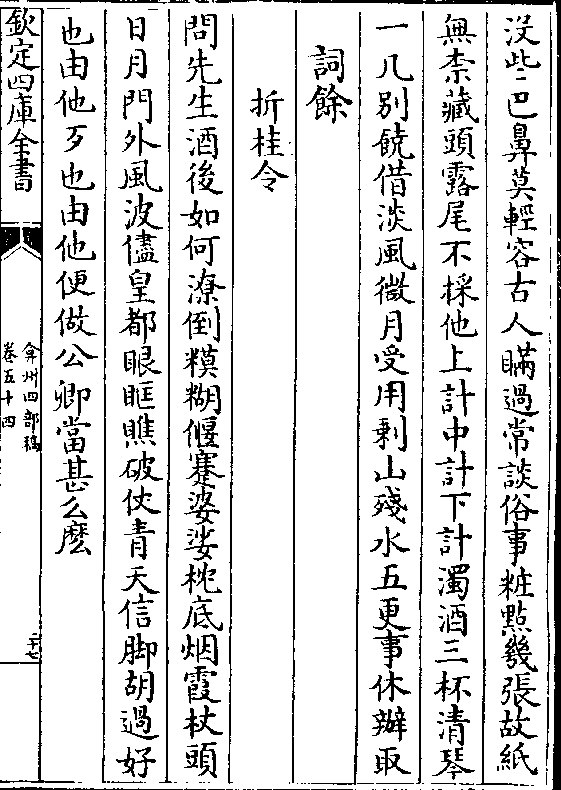 沒些巴鼻莫輕容古人瞞過常談俗事粧點幾張故紙
無柰藏頭露尾不採他上計中計下計濁酒三杯清琴
一几別饒借淡風微月受用剩山殘水五更事休辦取
詞餘
折桂令
問先生酒後如何潦倒糢糊偃蹇婆娑枕底烟霞杖頭
日月門外風波儘皇都眼眶瞧破仗青天信脚胡過好
也由他歹也由他便做公卿當甚么麽
欽定四庫全書
弇州四部稿
卷五十四
二十七